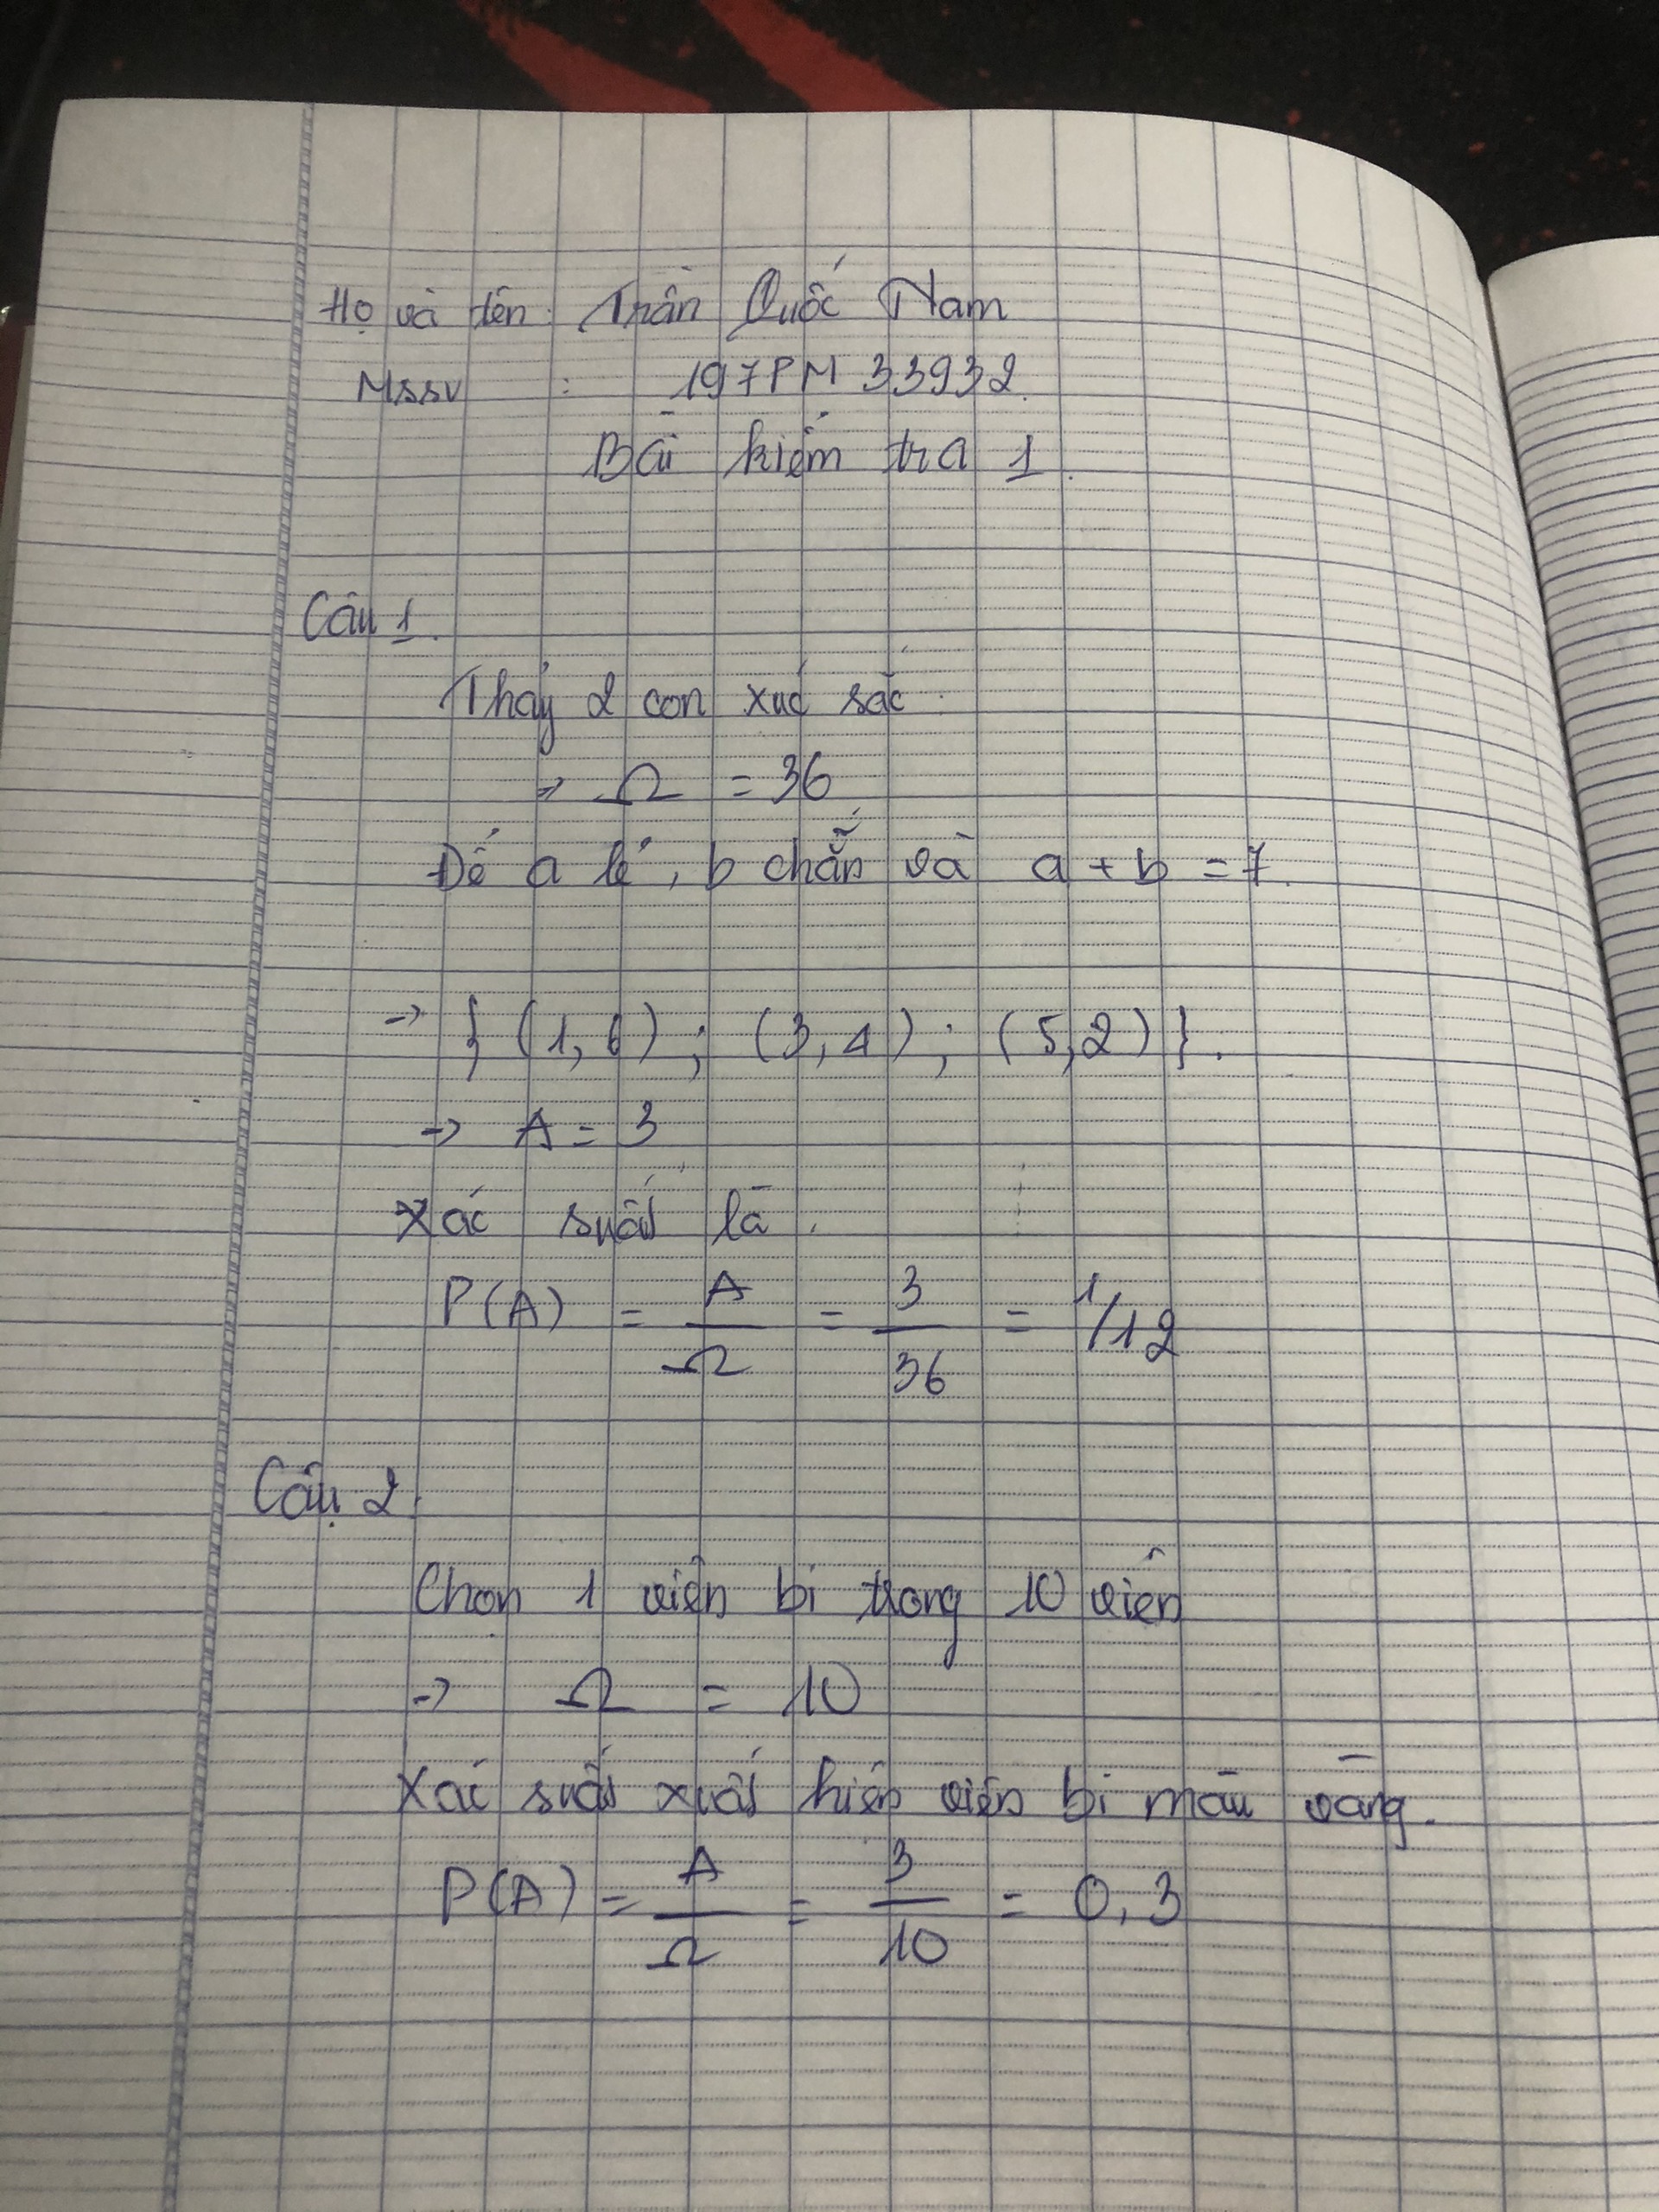 Họ và tên : Trần Quốc Nam
MSSV : 197PM33932.
Bài kiểm tra 1.
Câu 1.
Thảy 2 con xúc sắc :
→ Ω = 36
Để a lẻ, b chẵn và a + b = 7.
→ { (1,6) ; (3,4) ; (5,2) }.
→ A = 3
Xác suất là :
P(A) = A/Ω = 3/36 = 1/12
Câu 2.
Chọn 1 viên bi trong 10 viên
→ Ω = 10
Xác suất xuất hiện viên bi màu vàng.
P(A) = A/Ω = 3/10 = 0,3